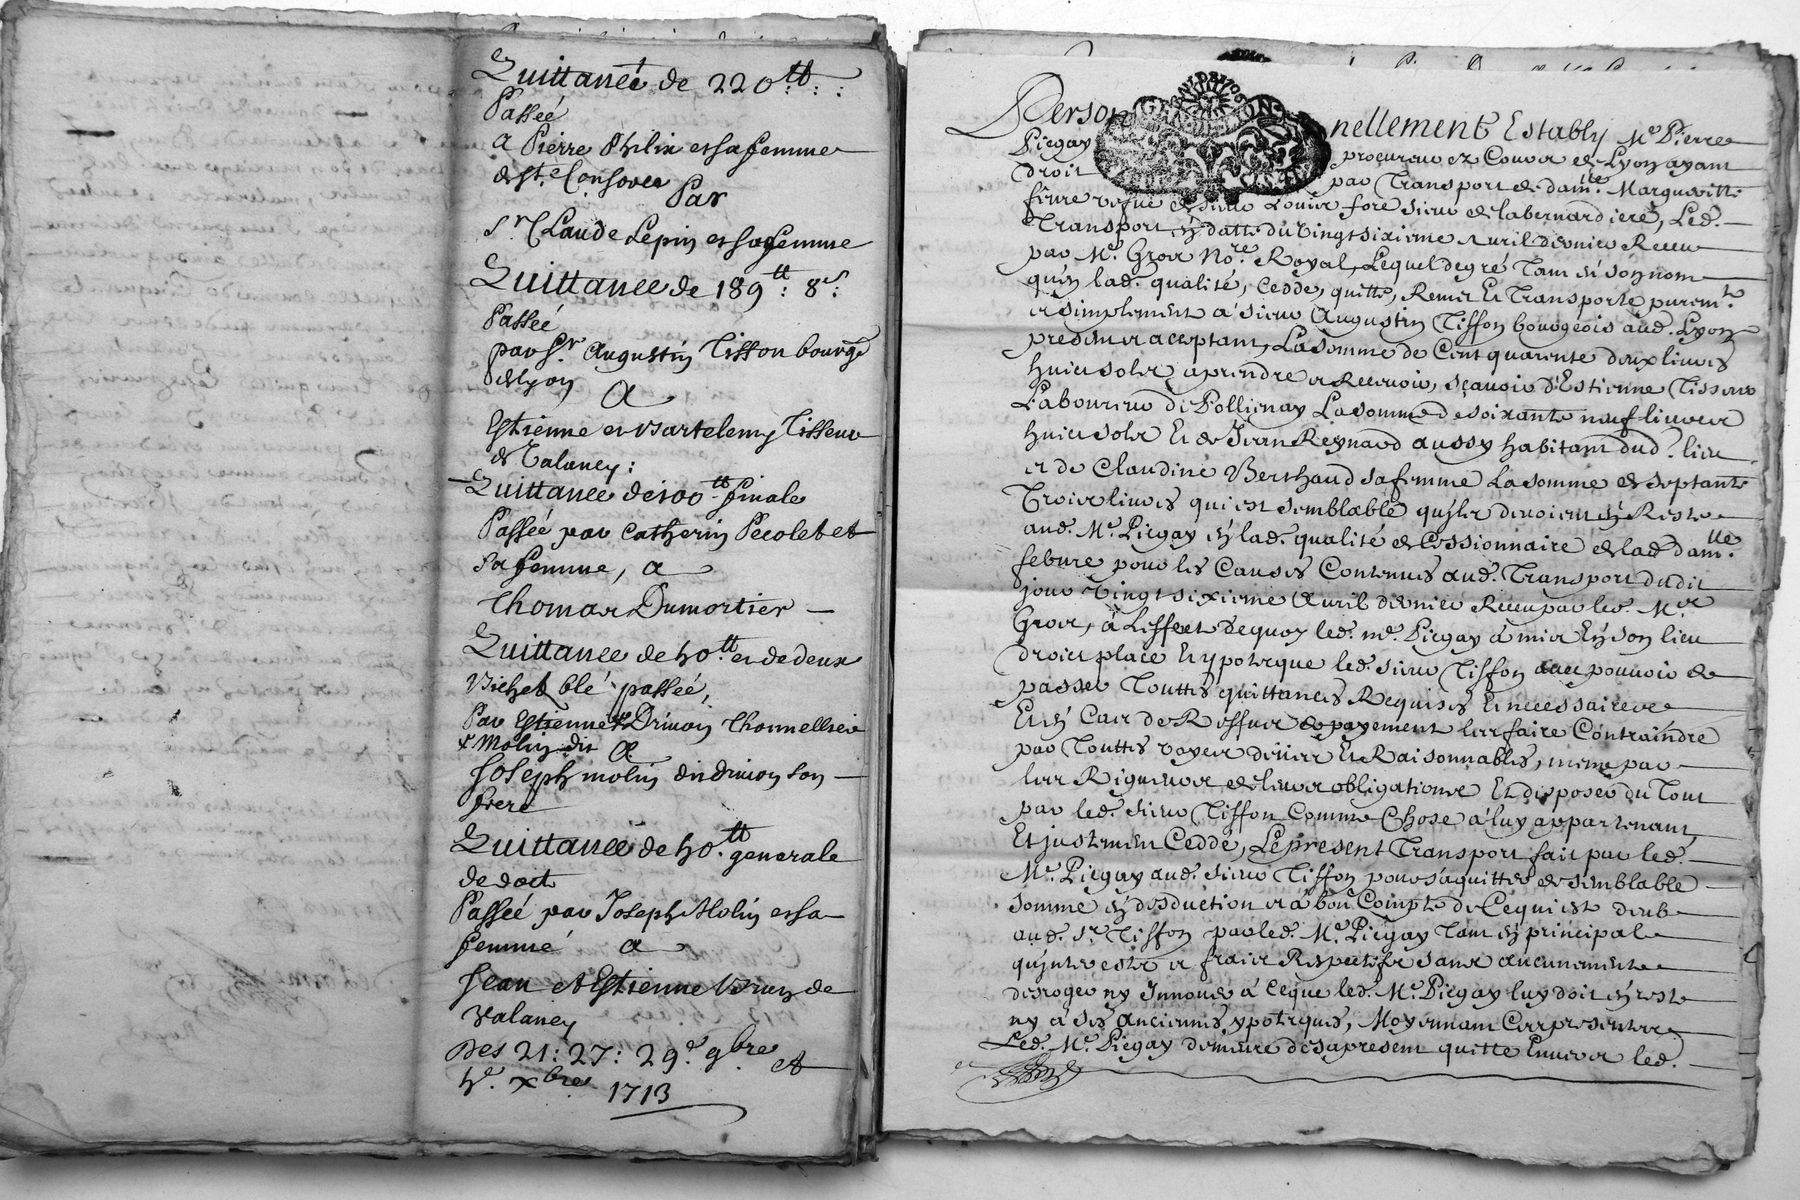 Quittance de 220.tt
Passeé
a Pierre Philix et sa femme
de Ste Consorce
Par
Sr Claude Lepin et sa femme
Quittance de 189tt: 8s:
Passeé
par Sr. Augustin Tisson bourge
de Lyon
A
Estienne et Bartelemy Tisseur
de Talancy:
Quittance de 100tt finale
Passeé par Catherin Pecolet et
sa femme, a
Thomas Dumortier
Quittance de 50tt et de deux
Bichet blé passeé,
Par Estienne Drivon
Molin dit A
Joseph molin dit drivon son
frere
Quittance de 50.tt generale
de doct
Passeé par Joseph Molin et sa
femme a
Jean et Estienne de
Valancy
Des 21: 27: 29e 9bre et
5e. xbre 1713
Personnellement Estably Me. Pierre
Piegay procureur ez Cours de Lyon ayant
droit par Transport de damlle. Margueritte
febure vefue de sieur Louis foré sieur de labernardiere, Led.
Transport en datte du Vingt sixieme Auril dernier Receu
par Me. Gros Nore. Royal, Lequel de gré Tant en son nom
qu'en lad. qualité, Cedde, quitte, Remet Et Transporte puremt.
et simplement a sieur Augustin Tisson bourgeois aud. Lyon
present et acceptant, La somme de Cent quarente deux liures
huict sols a prendre et Receuoir, sçauoir d'Estienne Tisseur
Laboureur de Pollienay La somme de soixante neuf liures
huict sols Et de Jean Reynard aussy habitant dud. lieu
et de Claudine Berthaud sa femme La somme de septante
Trois liures qui est semblable qu'ils deuoient en Reste
aud. Me. Piegay en lad. qualité de Cessionnaire de lad. damlle.
febure pour les Causes Contenues aud. Transport dudit
jour Vingt sixieme Auril dernier Receu par led. Me
Gros, a L'effect dequoy led. me. Piegay a mis En son lieu
droict place Et ypoteque led. sieur Tisson auec pouuoir de
passer Touttes quittances Requises Et necessaires
Et en Cas de Reffus de payement les faire Contraindre
par Touttes voyes deües Et Raisonnables, meme par
les Rigueurs de leurs obligations Et disposer du Tout
par led. sieur Tisson Comme Chose a luy appartenant
Et justement Ceddé, Le present Transport fait par led.
Me. Piegay aud. sieur Tisson pour s'aquitter de semblable
somme en desduction et a bon Compte de Ce qui est deub
aud. Sr. Tisson par led. Me. Piegay Tant en principal
qu'interests et frais Respectifs sans aucunement
desroger ny Innouer a Ceque led. Me. Piegay luy doit en reste
ny a ses anciennes ypoteques, Moyennant Ces presentes
Led. Me. Piegay demeure des a present quitte Enuers led.